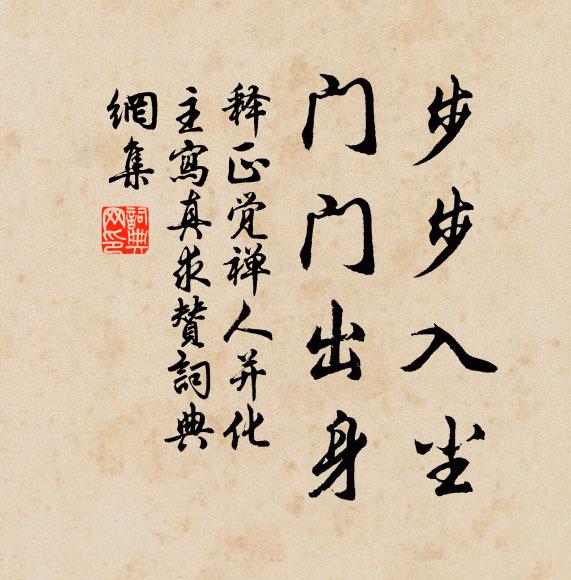 步步入尘
门门出身
释正觉禅人并化
主寫真求賛詞典
網集
詞典
网印